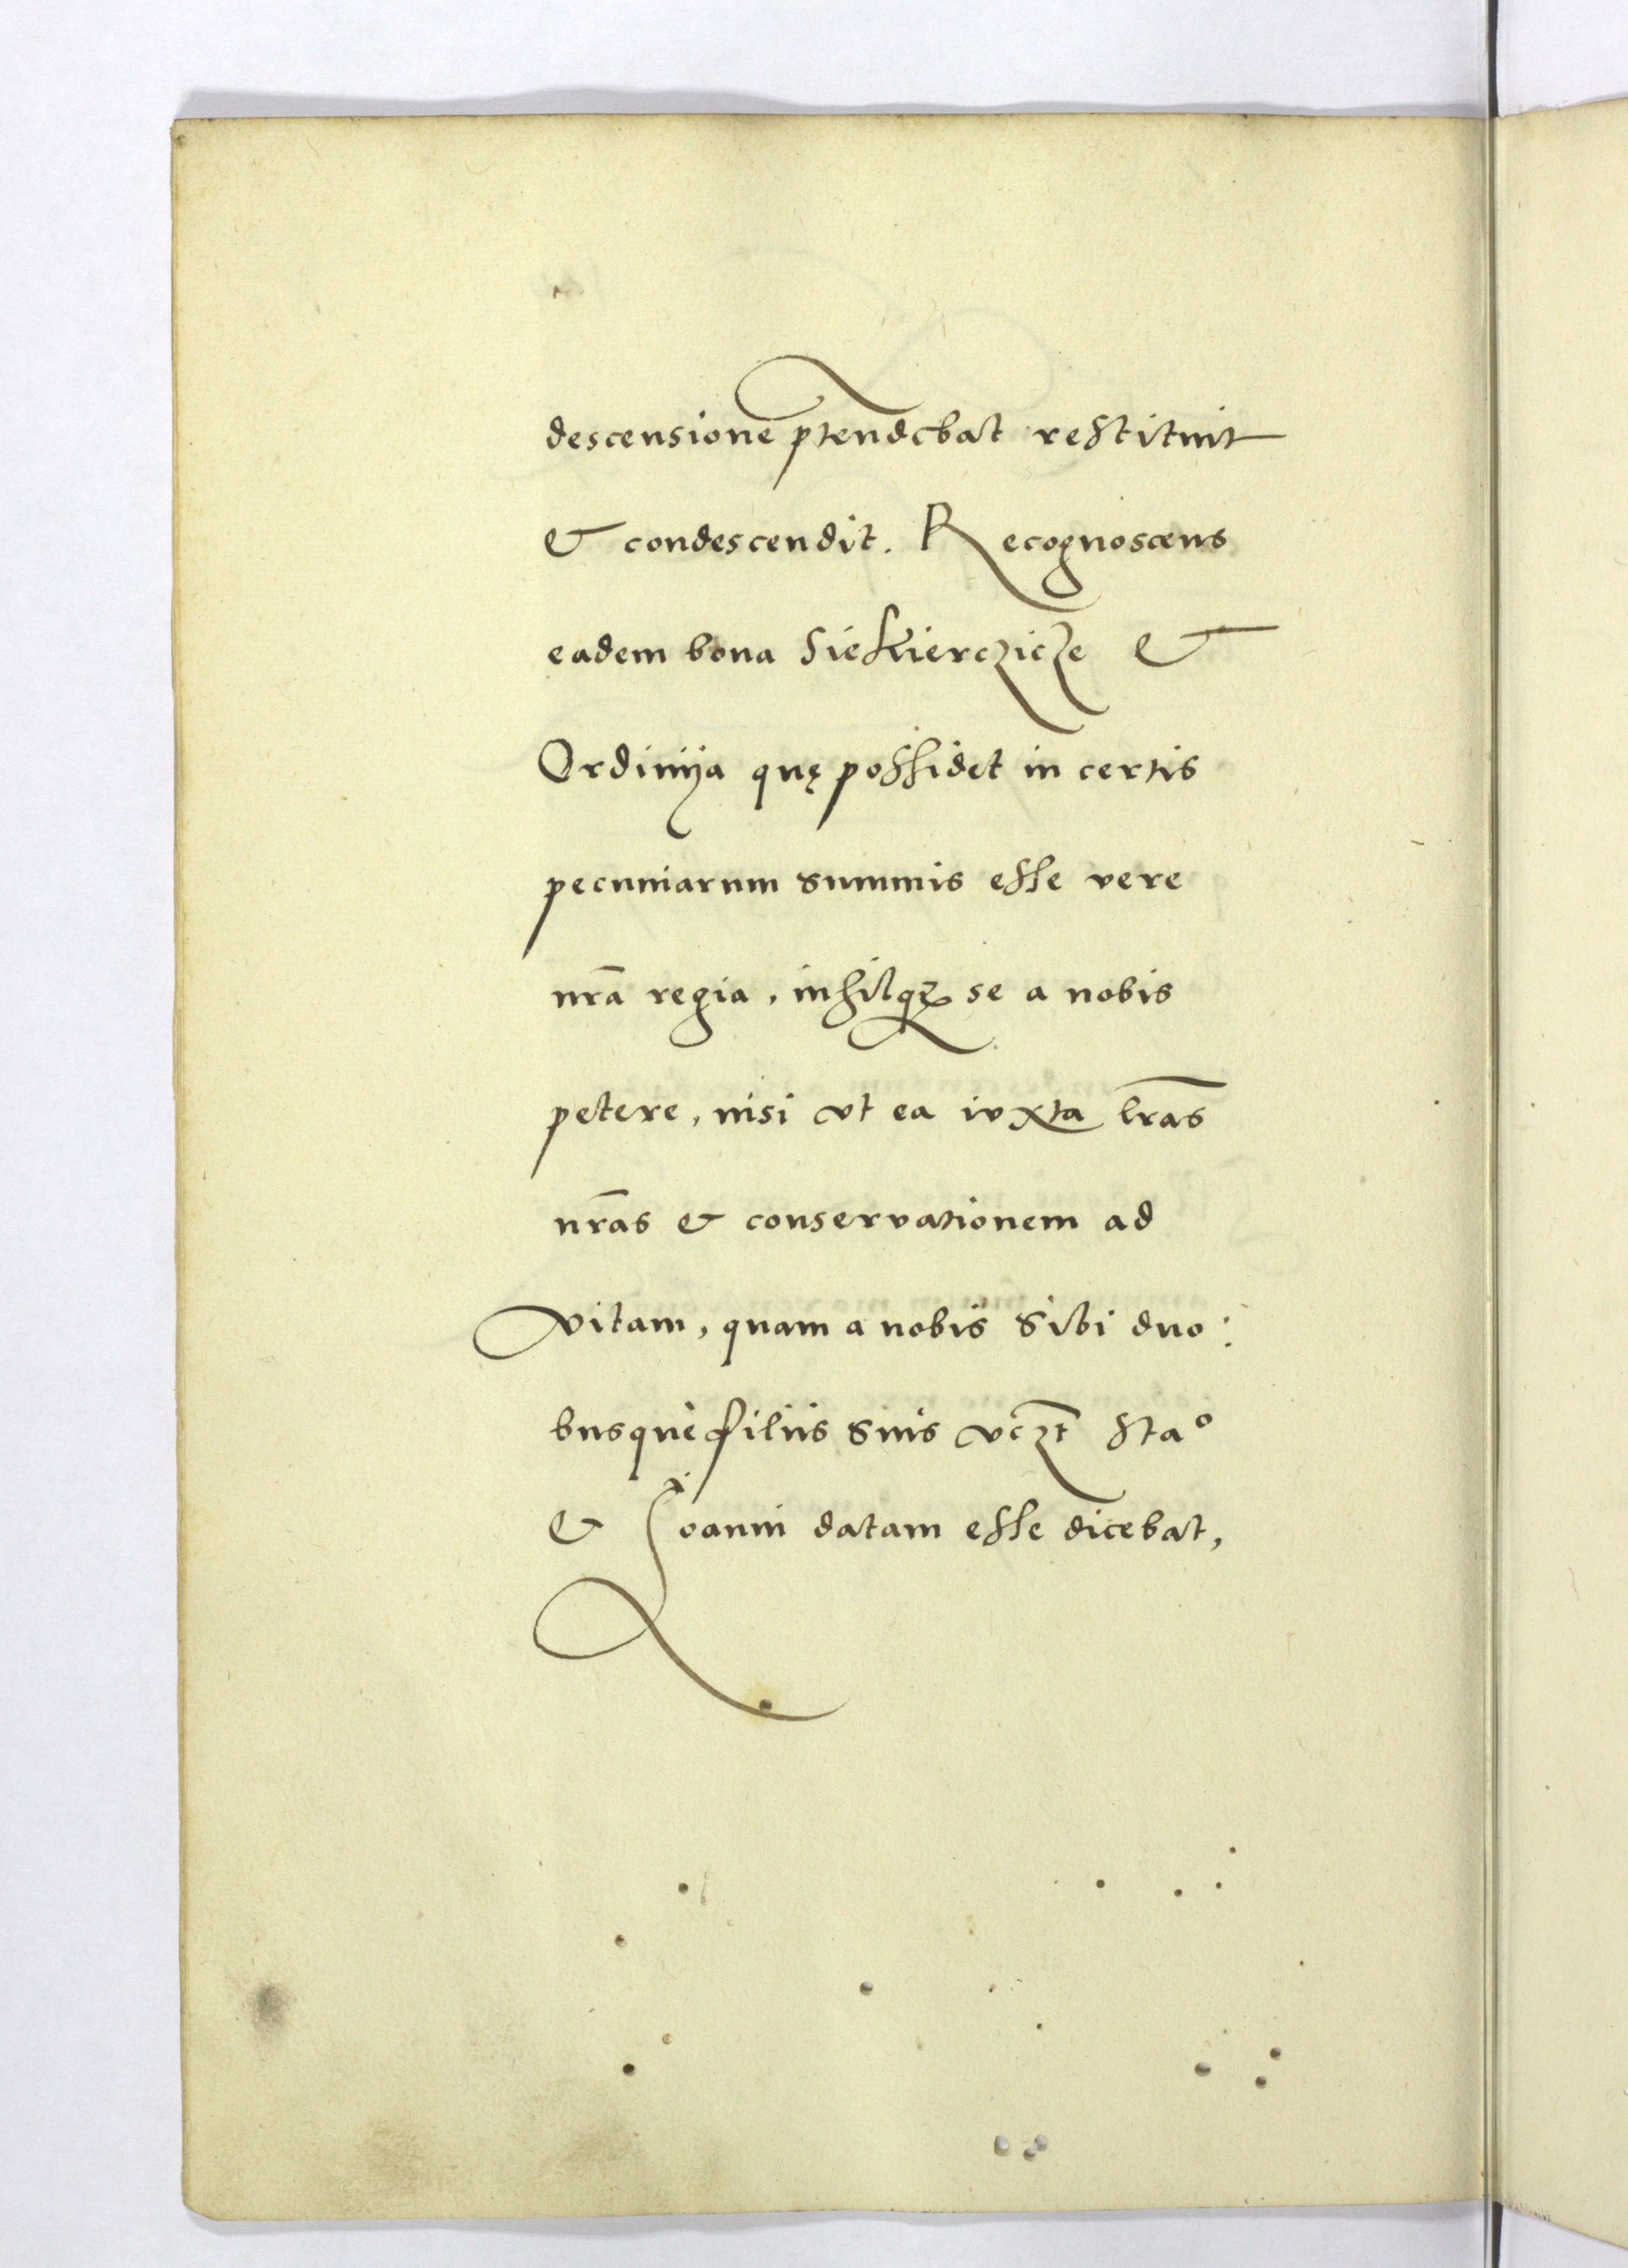 descensione p̄tendebat restituit
& condescendit. Recognoscens
eadem bona Siekierczicze &
Ordiniija quę possidet in certis
pecuniarum summis esse vere
nr̄a regia, inhilqȝ se a nobis
petere, nisi vt ea iuxta lr̄as
nr̄as & conservationem ad
vitam, quam a nobis sibi duo:
busque filiis suis vcȝt̄ Staº
& Joanni datam esse dicebat,